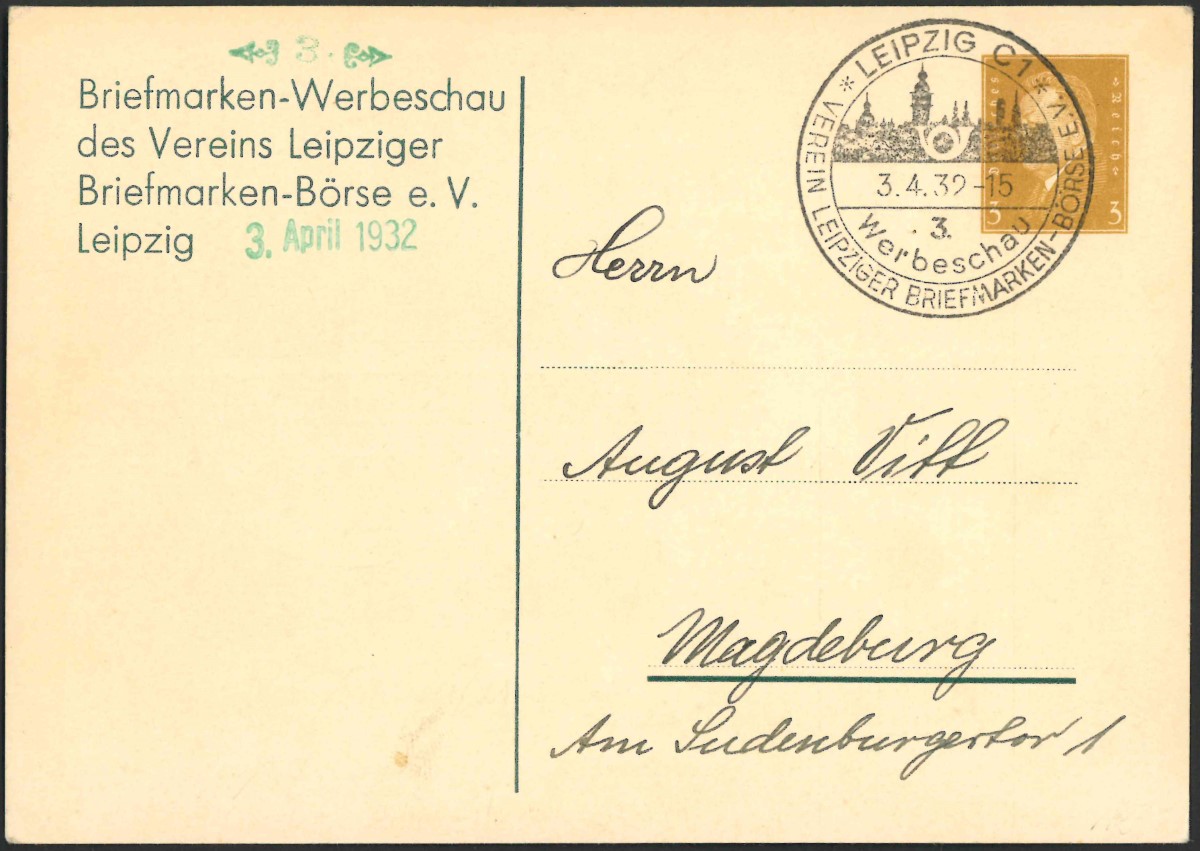 3.
Briefmarken-Werbeschau
des Vereins Leipziger
Briefmarken-Börse e. V.
Leipzig 3. April 1932
* LEIPZIG C1 *
VEREIN LEIPZIGER BRIEFMARKEN-BÖRSE E.V.
3.4.32-15
3.
Werbeschau
Reich
3 3
Herrn
August Vitt
Magdeburg
Am Sudenburgertor 1